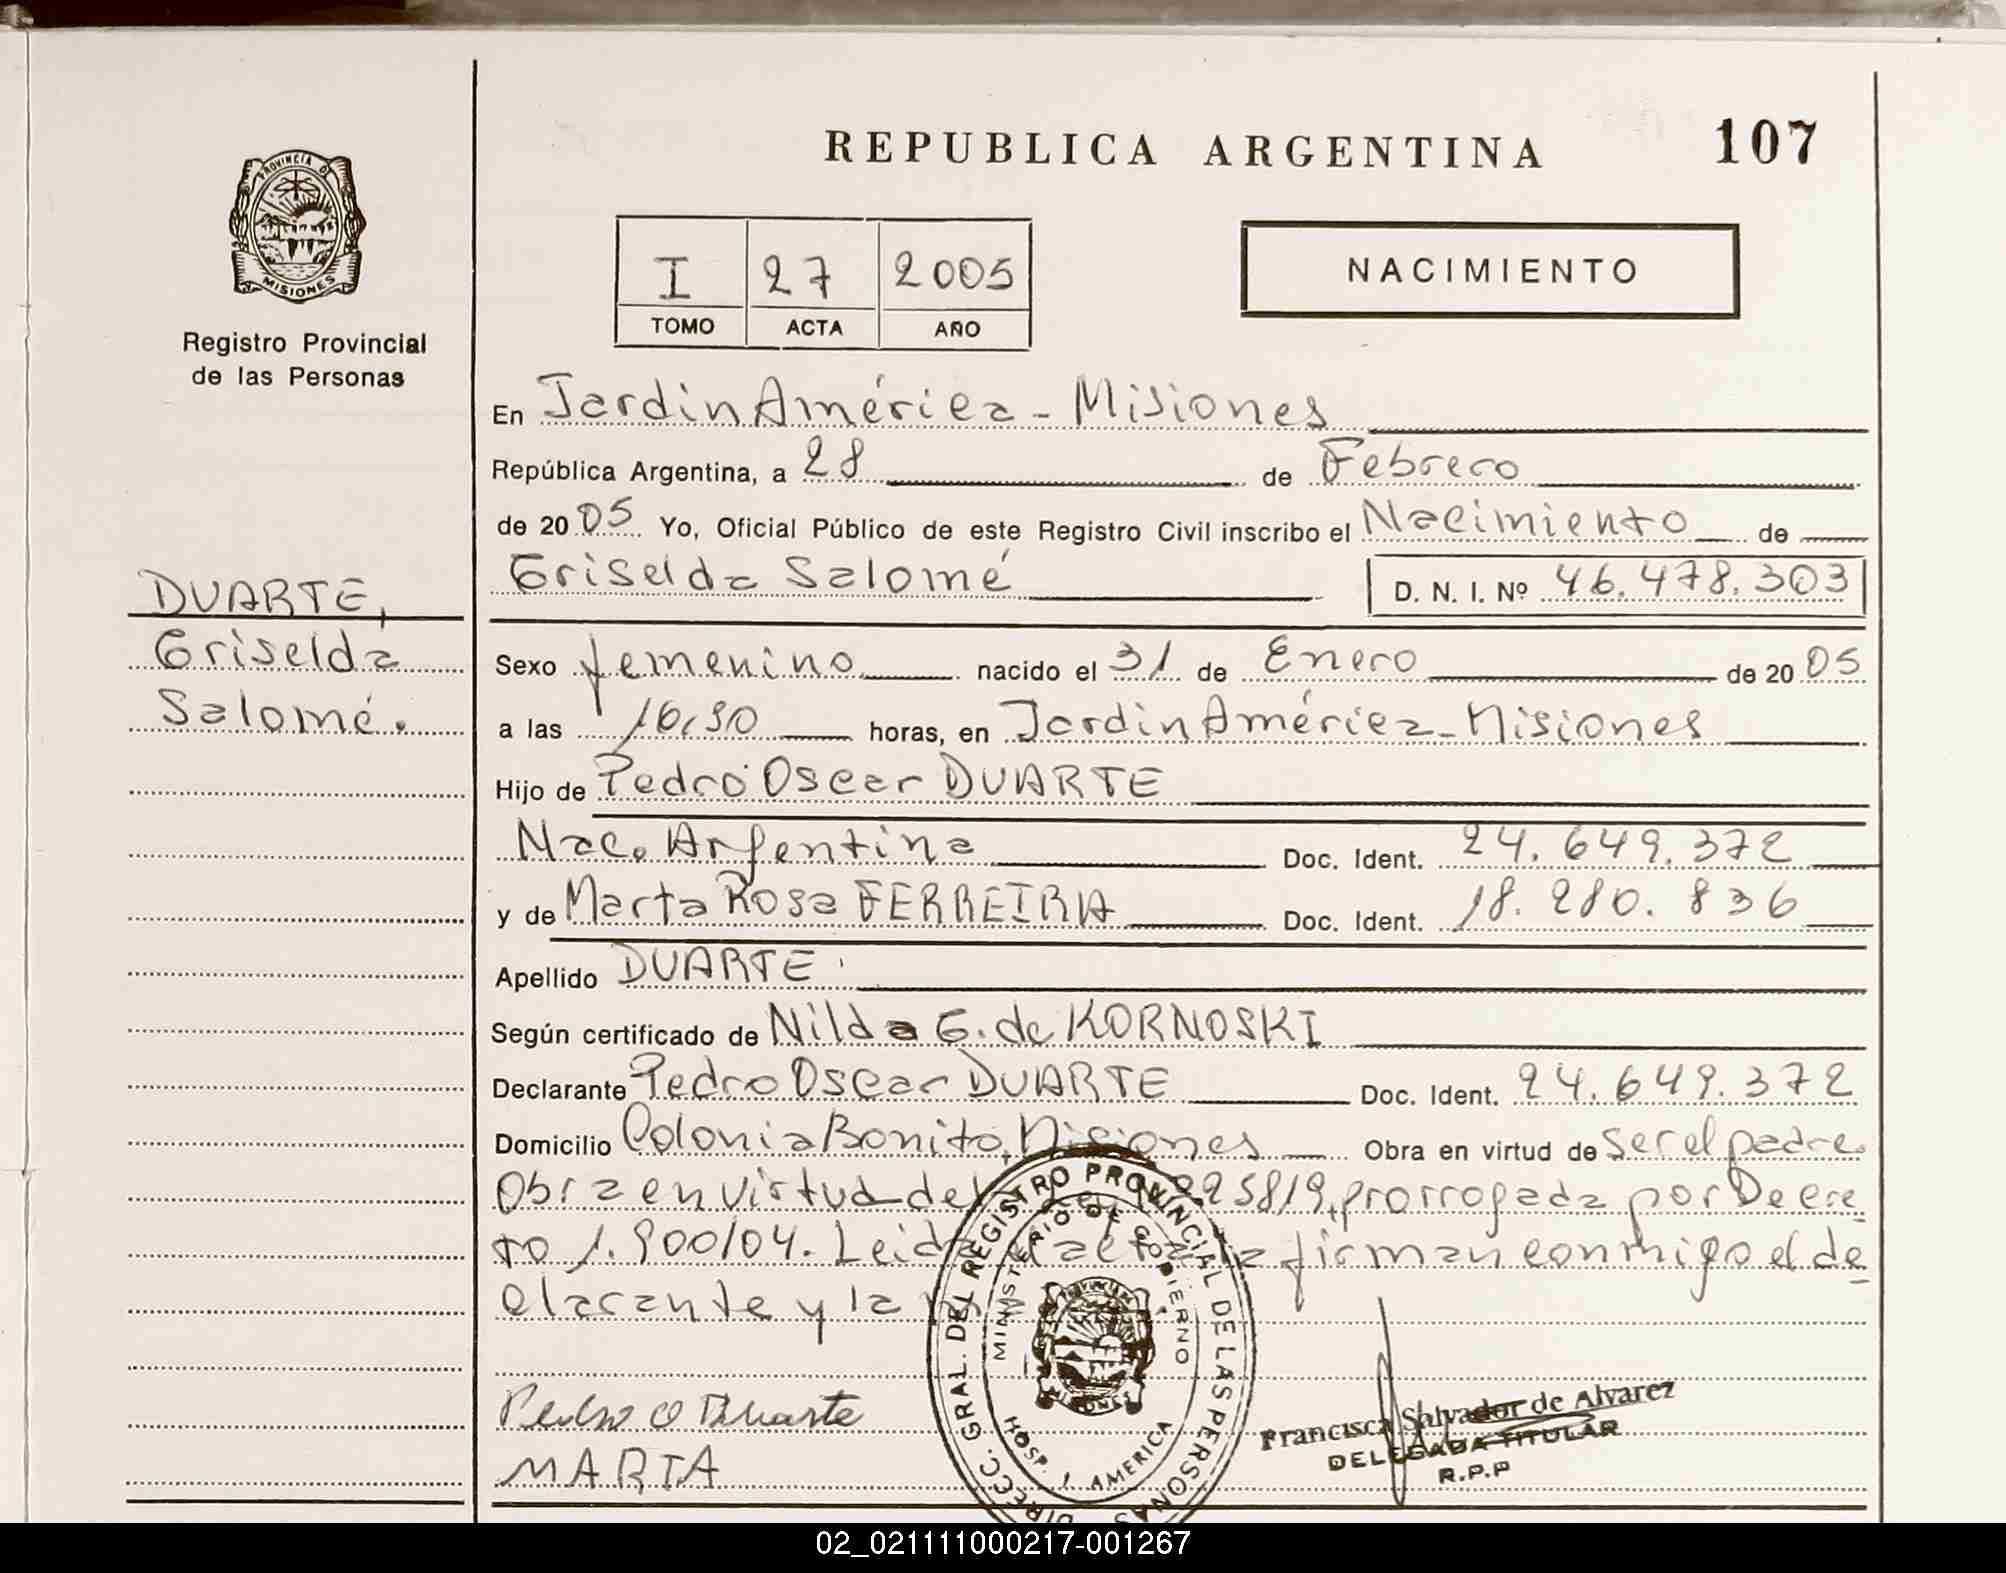 REPUBLICA ARGENTINA
107
PROVINCIA DE
MISIONES
Registro Provincial
de las Personas
I 27 2005
TOMO ACTA AÑO
NACIMIENTO
En Jardin América - Misiones
República Argentina, a 28 de Febrero
de 2005 Yo, Oficial Público de este Registro Civil inscribo el Nacimiento de
Griselda Salomé D. N. I. Nº 46.478.303
DUARTE,
Griselda
Salomé.
Sexo femenino nacido el 31 de Enero de 2005
a las 16,30 horas, en Jardin América - Misiones
Hijo de Pedro Oscar DUARTE
Nac. Argentina Doc. Ident. 24.649.372
y de Marta Rosa FERREIRA Doc. Ident. 18.280.836
Apellido DUARTE
Según certificado de Nilda G. de KORNOSKI
Declarante Pedro Oscar DUARTE Doc. Ident. 24.649.372
Domicilio Colonia Bonito, Misiones Obra en virtud de ser el padre.
Obra en virtud de 25819, prorrogada por Decre
to 1.900/04. Leida el acta la firman conmigo el de
clarante y la
Pedro O Duarte
MARTA
DIRECC. GRAL. DEL REGISTRO PROVINCIAL DE LAS PERSONAS
MINISTERIO DE GOBIERNO
HOSP. J. AMERICA
Francisca Salvador de Alvarez
DELEGADA TITULAR
R.P.P
02_021111000217-001267